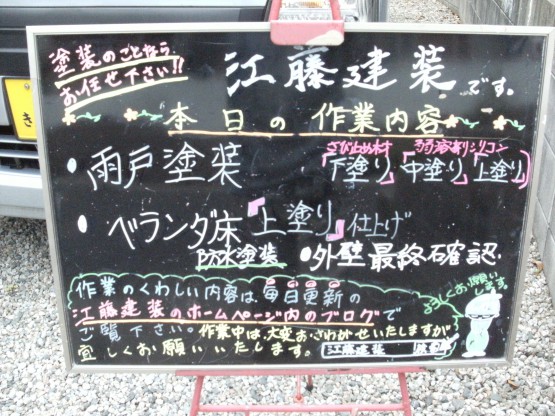 塗装のことなら
お任せ下さい!!
江藤建装です。
本日の作業内容
さび止め材 弱溶剤シリコン
・雨戸塗装 「下塗り」「中塗り」「上塗り」
・ベランダ床「上塗り」仕上げ
防水塗装 ・外壁最終確認
作業のくわしい内容は、毎日更新の
江藤建装のホームページ内のブログで
ご覧下さい。作業中は、大変おさわがせいたしますが
宜しくお願いいたします。 江藤建装
よろしくお願いします。
き